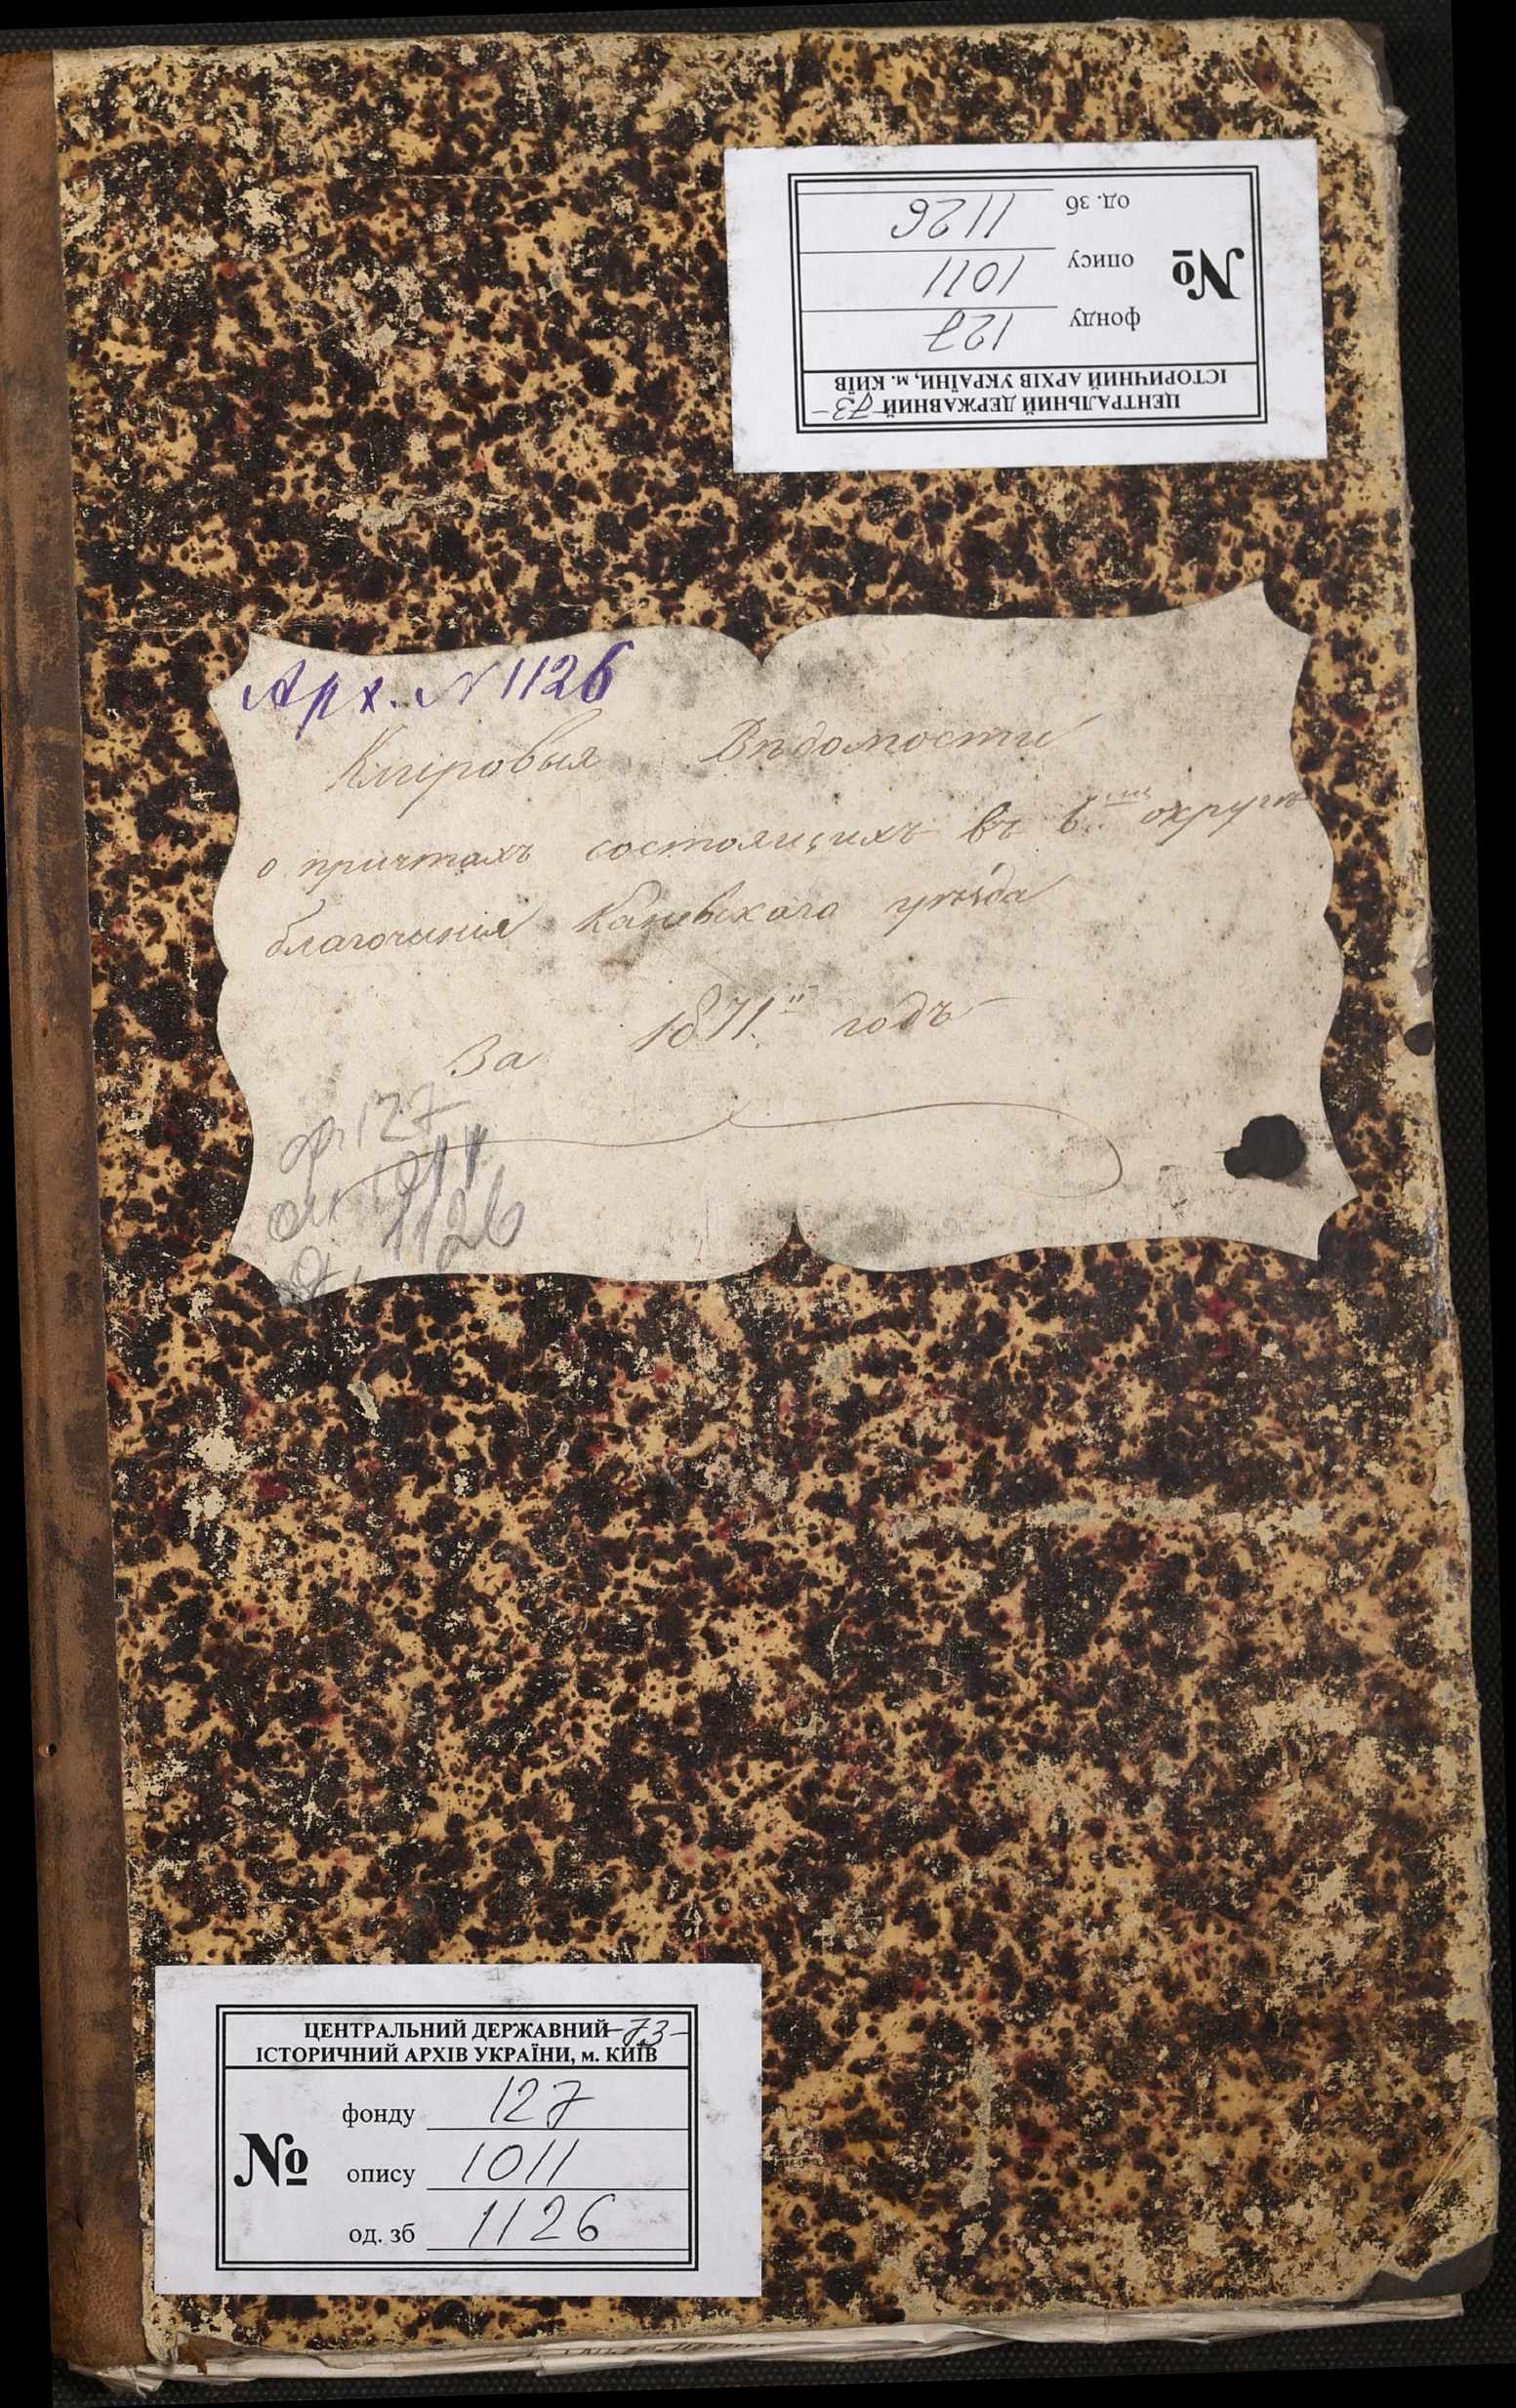 ЦЕНТРАЛЬНИЙ ДЕРЖАВНИЙ -73-
ІСТОРИЧНИЙ АРХІВ УКРАЇНИ, м. КИЇВ
№
фонду 127
опису 1011
од. зб 1126
Арх. N 1126
Клировыя Вѣдомости
о причтахъ состоящихъ въ 6.мъ округѣ
благочинія Каневскаго уѣзда
За 1871.й годъ
ф. 127
оп. 1011
д. 1126
ЦЕНТРАЛЬНИЙ ДЕРЖАВНИЙ -73-
ІСТОРИЧНИЙ АРХІВ УКРАЇНИ, м. КИЇВ
№
фонду 127
опису 1011
од. зб 1126